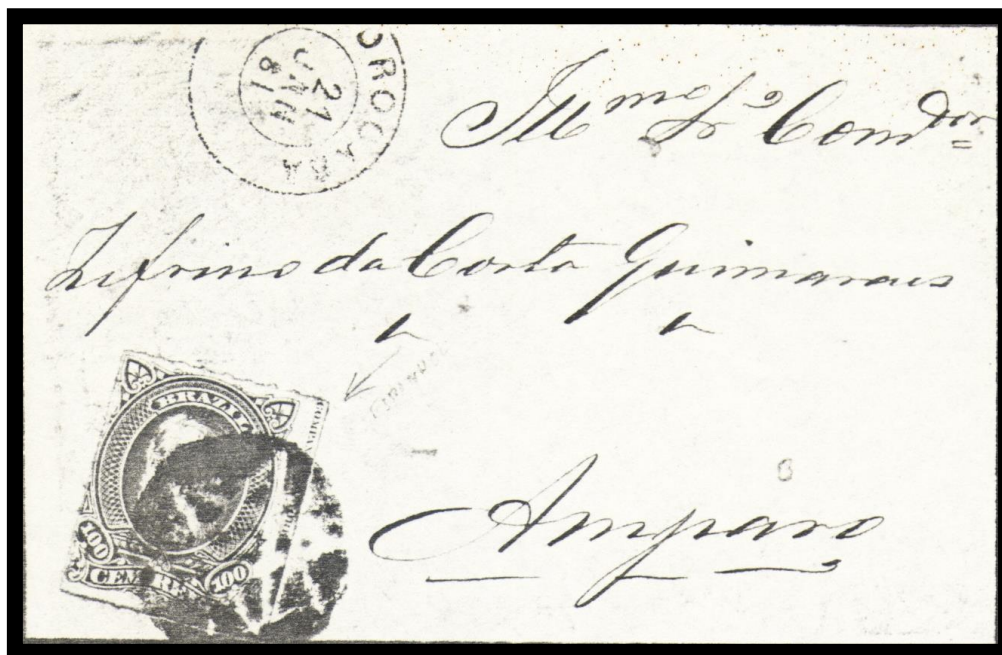 SOROCABA
21
JAN
81
Ill^mo Sr Com^dor
Zifrino da Costa Guimaraes
Amparo
BRAZIL
100 100
CEM REIS